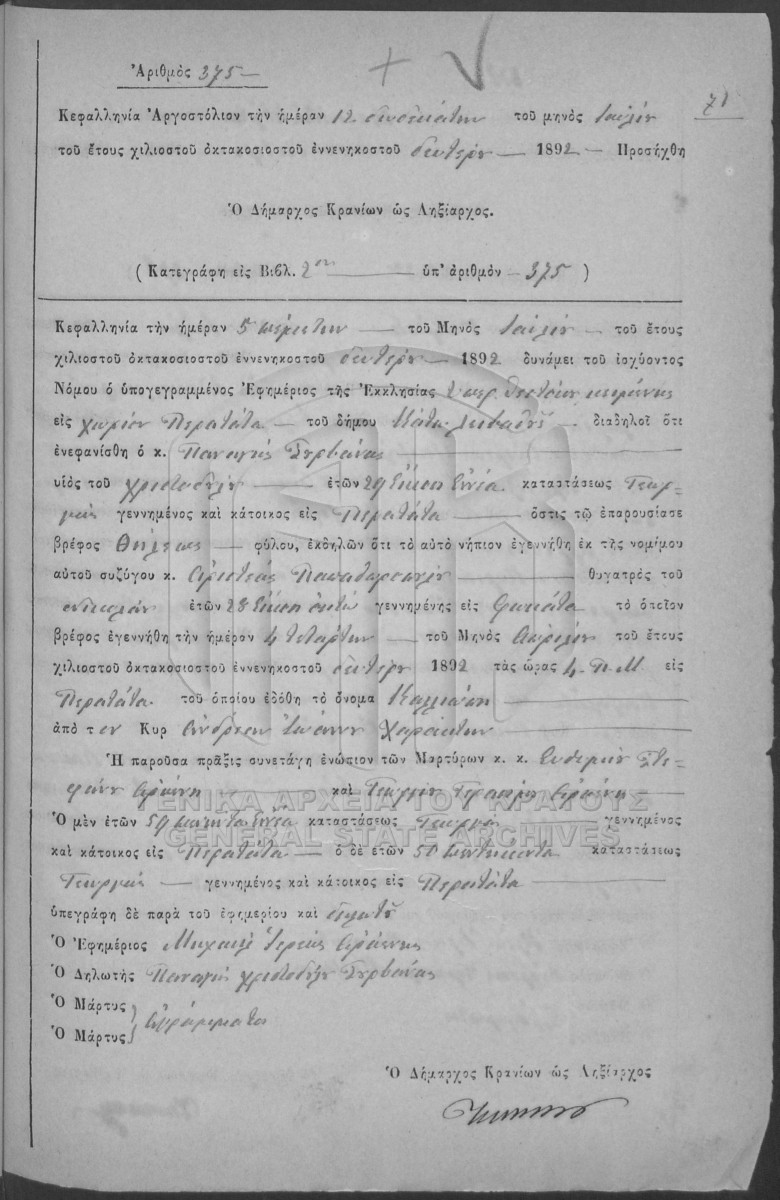 Ἀριθμὸς 375 —
71
Κεφαλληνία Ἀργοστόλιον τὴν ἡμέραν 12 δωδεκάτην τοῦ μηνὸς Ἰουλίου
τοῦ ἔτους χιλιοστοῦ ὀκτακοσιοστοῦ ἐννενηκοστοῦ δευτέρου — 1892 — Προσήχθη
Ὁ Δήμαρχος Κρανίων ὡς Ληξίαρχος.
( Κατεγράφη εἰς Βιβλ. 2ον — ὑπ' ἀριθμὸν — 375 )
Κεφαλληνία τὴν ἡμέραν 5 πέμπτην — τοῦ Μηνὸς Ἰουλίου — τοῦ ἔτους
χιλιοστοῦ ὀκτακοσιοστοῦ ἐννενηκοστοῦ δευτέρου — 1892 δυνάμει τοῦ ἰσχύοντος
Νόμου ὁ ὑπογεγραμμένος Ἐφημέριος τῆς Ἐκκλησίας Ὑπερ
εἰς χωρίον Περατάτα — τοῦ δήμου — διαδηλοῖ ὅτι
ἐνεφανίσθη ὁ κ. Παναγῆς Σερβάνας —
υἱὸς τοῦ Χριστοδούλου — ἐτῶν 29 Εἴκοσι Ἐννέα καταστάσεως Γεωρ-
γὸς γεννημένος καὶ κάτοικος εἰς Περατάτα — ὅστις τῷ ἐπαρουσίασε
βρέφος Θήλεως — φύλου, ἐκδηλῶν ὅτι τὸ αὐτὸ νήπιον ἐγεννήθη ἐκ τῆς νομίμου
αὐτοῦ συζύγου κ. Ἀριστέας — θυγατρὸς τοῦ
ἐτῶν 28 Εἴκοσι ὀκτώ γεννημένης εἰς τὸ ὁποῖον
βρέφος ἐγεννήθη τὴν ἡμέραν 4 τετάρτην — τοῦ Μηνὸς Ἀπριλίου τοῦ ἔτους
χιλιοστοῦ ὀκτακοσιοστοῦ ἐννενηκοστοῦ δευτέρου 1892 τὰς ὥρας 4 Π.Μ εἰς
Περατάτα τοῦ ὁποίου ἐδόθη τὸ ὄνομα Καλλιόπη —
ἀπὸ τον Κυρ Ἀνδρέαν Ἰωάννου —
Ἡ παροῦσα πρᾶξις συνετάγη ἐνώπιον τῶν Μαρτύρων κ. κ. Εὐθυμίου Στε-
φάνου — καὶ Γεωργίου Γερασίμου —
ΓΕΝΙΚΑ ΑΡΧΕΙΑ ΤΟΥ ΚΡΑΤΟΥΣ
Ὁ μὲν ἐτῶν 59 πενήντα Ἐννέα καταστάσεως Γεωργὸς — γεννημένος
GENERAL STATE ARCHIVES
καὶ κάτοικος εἰς Περατάτα — ὁ δὲ ἐτῶν 50 πεντήκοντα καταστάσεως
Γεωργὸς — γεννημένος καὶ κάτοικος εἰς Περατάτα —
ὑπεγράφη δὲ παρὰ τοῦ ἐφημερίου καὶ
Ὁ Ἐφημέριος Μιχαὴλ Ἱερεὺς
Ὁ Δηλωτὴς Παναγῆς Χριστοδούλου Σερβάνας
Ὁ Μάρτυς
Ἀγράμματοι
Ὁ Μάρτυς
Ὁ Δήμαρχος Κρανίων ὡς Ληξίαρχος